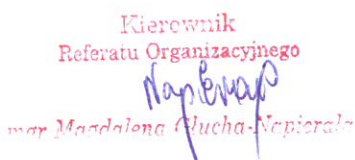 Kierownik
Referatu Organizacyjnego
Napierała
mgr Magdalena Głucha-Napierala